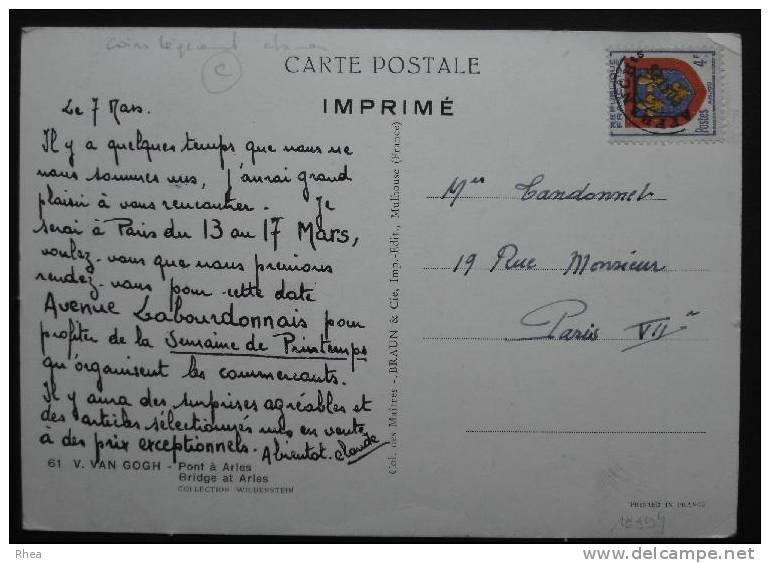 CARTE POSTALE
IMPRIMÉ
Le 7 Mars.
Il y a quelques temps que nous ne
nous sommes vus, j'aurai grand
plaisir à vous rencontrer. Je
serai à Paris du 13 au 17 Mars,
voulez-vous que nous prenions
rendez-vous pour cette date
Avenue Labourdonnais pour
profiter de la Semaine de Printemps
qu'organisent les commercants.
Il y aura des surprises agréables et
des articles sélectionnés mis en vente
à des prix exceptionnels. A bientot. Claude
61 V. VAN GOGH - Pont à Arles
Bridge at Arles
COLLECTION WILDENSTEIN
Col. des Maîtres - BRAUN & Cie, Imp.-Edit., Mulhouse (France)
REPUBLIQUE
FRANÇAISE
4F
Postes
ANJOU
Mer Candonnet
19 Rue Monsieur
Paris VII
PRINTED IN FRANCE
Rhea
delcampe.net